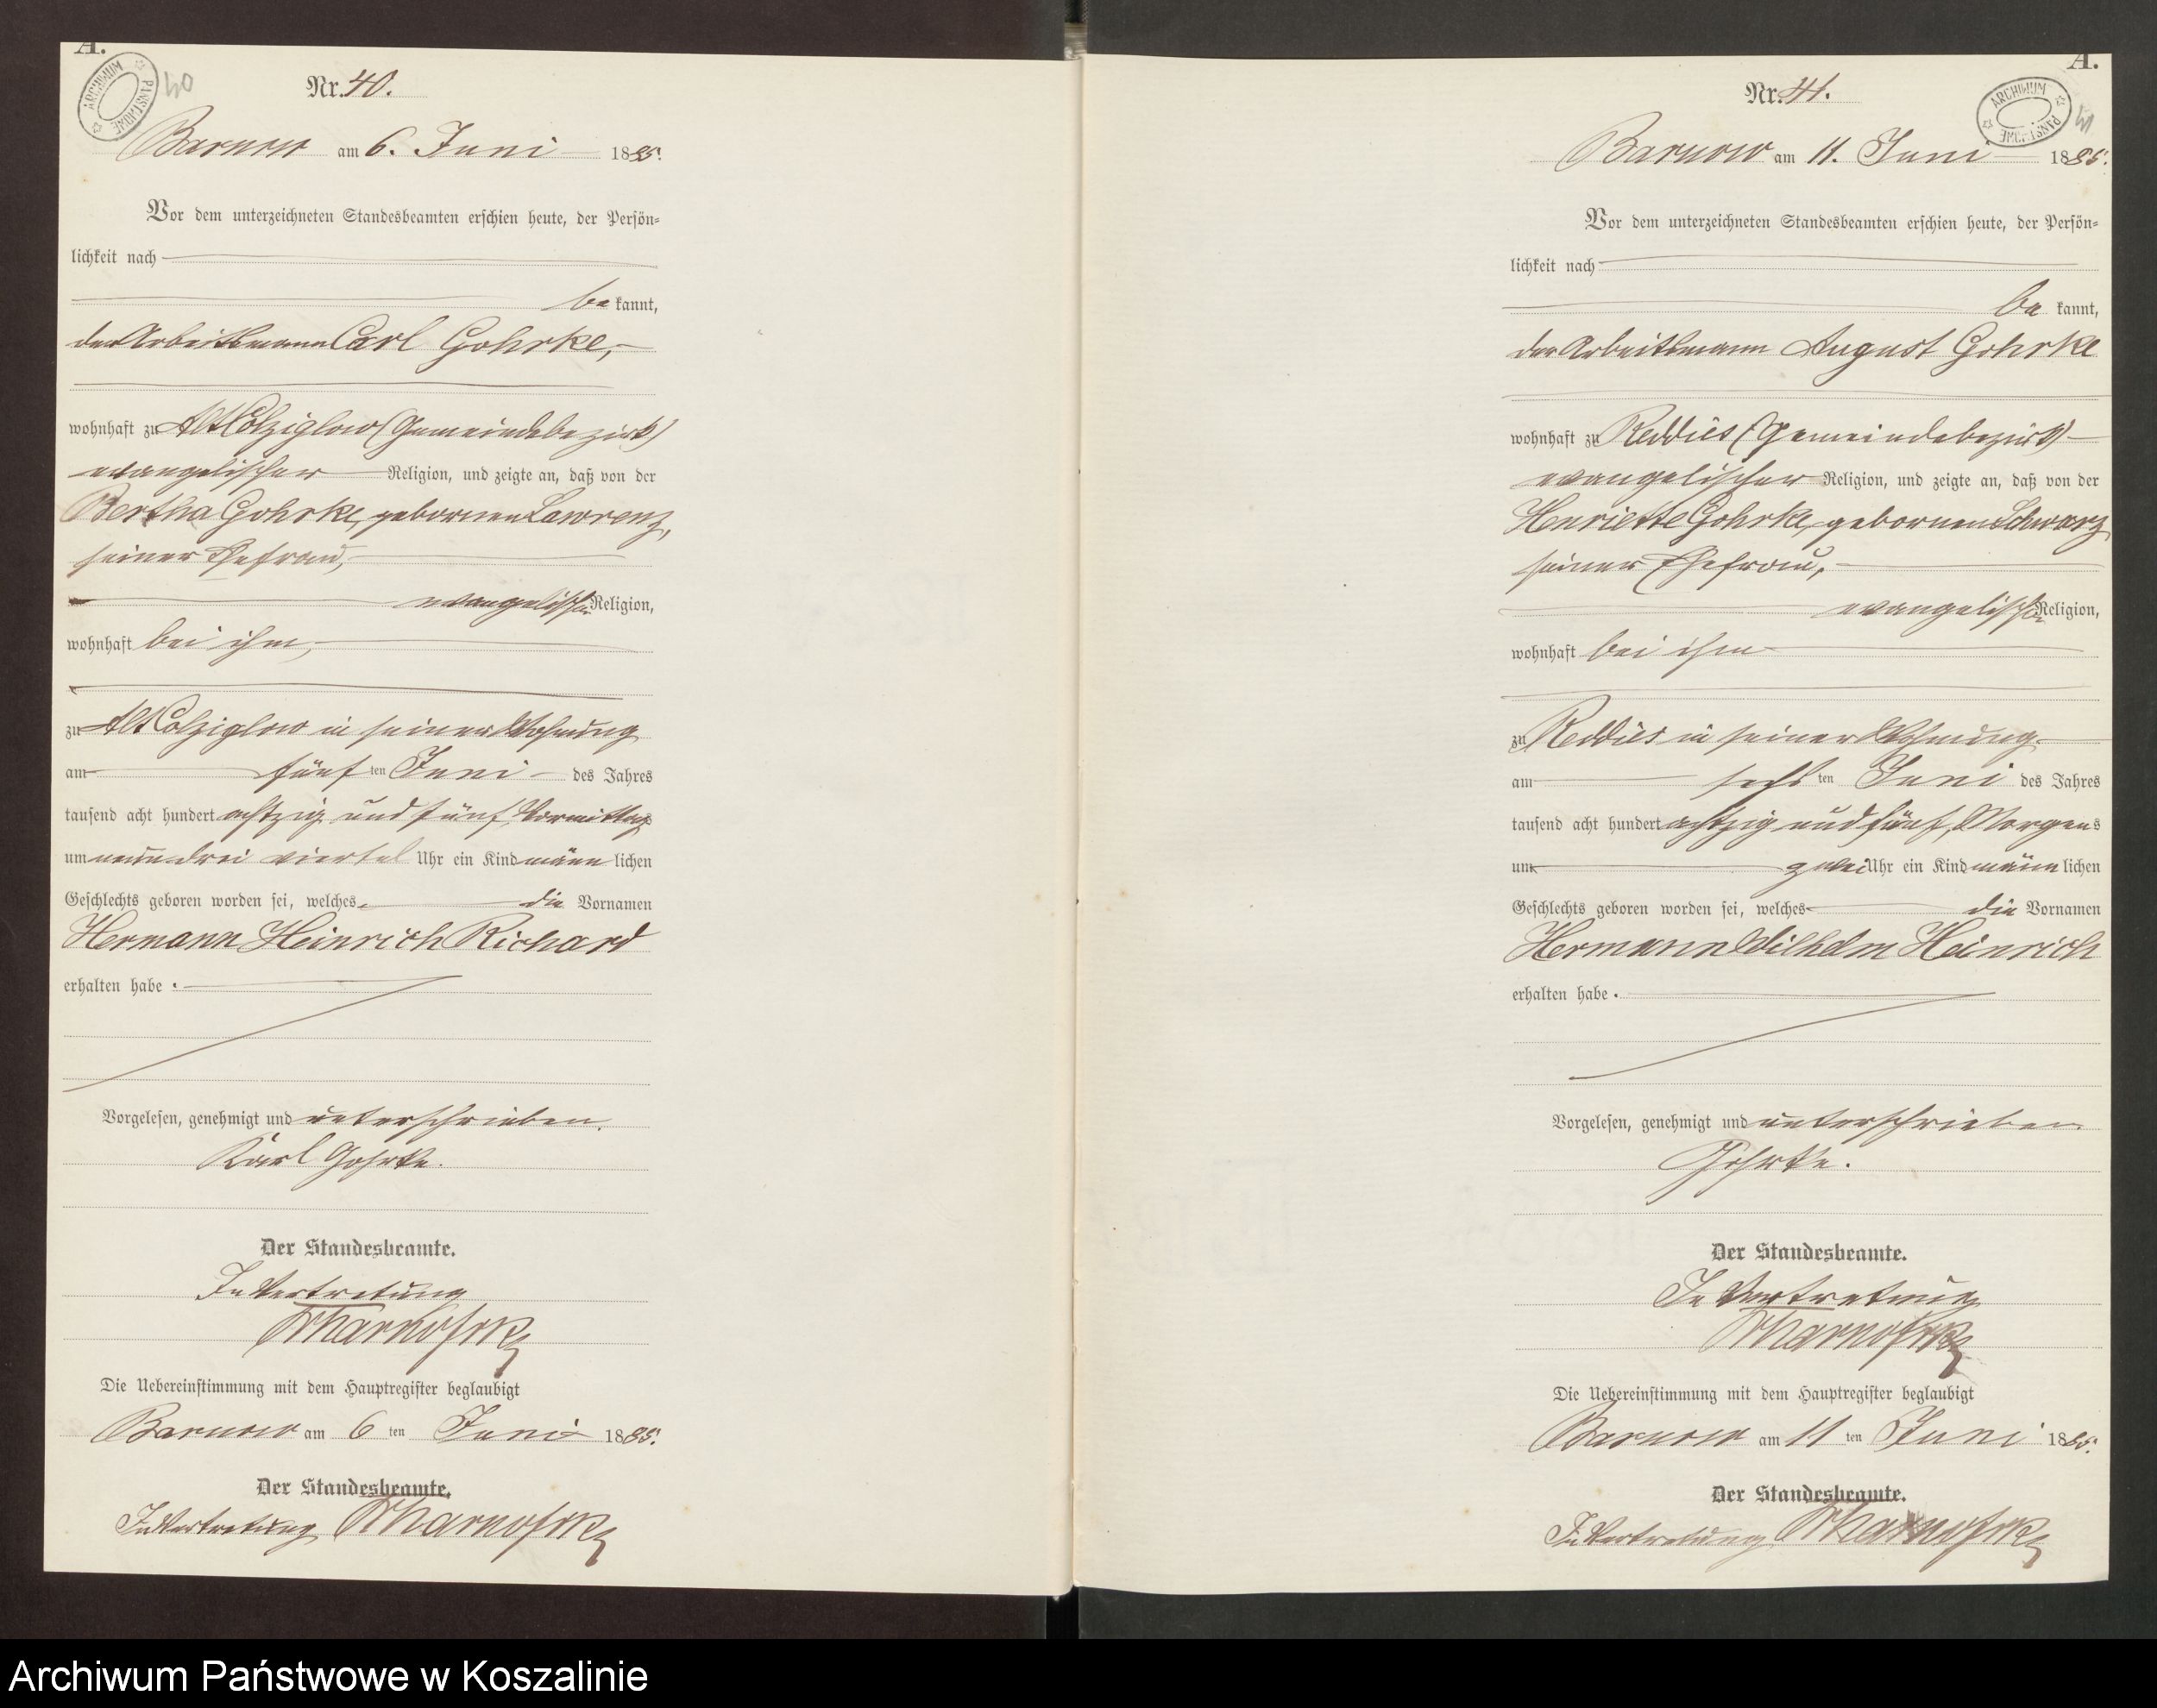 A.
ARCHIWUM PAŃSTWOWE
40
Nr. 40.
Barnow am 6. Juni 1885.
Vor dem unterzeichneten Standesbeamten erschien heute, der Persön-
lichkeit nach
be kannt,
der Arbeitsmann Carl Gohrke,
wohnhaft zu Alt Colziglow (Gemeindebezirk)
evangelischer Religion, und zeigte an, daß von der
Bertha Gohrke, gebornen Lawrenz,
seiner Ehefrau,
evangelischer Religion,
wohnhaft bei ihm,
zu Alt Colziglow in seiner Wohnung
am fünf ten Juni des Jahres
tausend acht hundert achtzig und fünf, Vormittags
um neun drei viertel Uhr ein Kind männ lichen
Geschlechts geboren worden sei, welches die Vornamen
Hermann Heinrich Richard
erhalten habe.
Vorgelesen, genehmigt und unterschrieben.
Karl Gohrke.
Der Standesbeamte.
In Vertretung
Die Uebereinstimmung mit dem Hauptregister beglaubigt
Barnow am 6 ten Juni 1885.
Der Standesbeamte.
In Vertretung
A.
ARCHIWUM PAŃSTWOWE
41
Nr. 41.
Barnow am 11. Juni 1885.
Vor dem unterzeichneten Standesbeamten erschien heute, der Persön-
lichkeit nach
be kannt,
der Arbeitsmann August Gohrke
wohnhaft zu Reddies (Gemeindebezirk)
evangelischer Religion, und zeigte an, daß von der
Henriette Gohrke, gebornen Schwarz
seiner Ehefrau,
evangelischer Religion,
wohnhaft bei ihm
zu Reddies in seiner Wohnung
am sechs ten Juni des Jahres
tausend acht hundert achtzig und fünf, Morgens
um zwei Uhr ein Kind männ lichen
Geschlechts geboren worden sei, welches die Vornamen
Hermann Wilhelm Heinrich
erhalten habe.
Vorgelesen, genehmigt und unterschrieben
Gohrke.
Der Standesbeamte.
In Vertretung
Die Uebereinstimmung mit dem Hauptregister beglaubigt
Barnow am 11 ten Juni 1885.
Der Standesbeamte.
In Vertretung
Archiwum Państwowe w Koszalinie